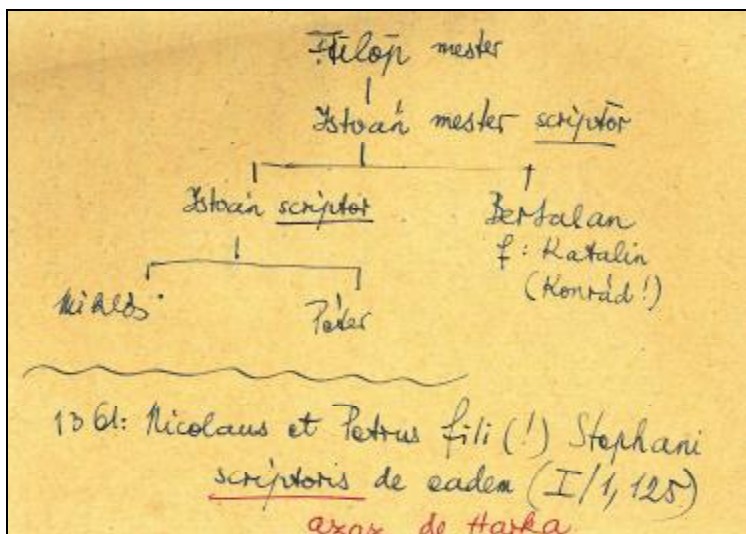 Fülöp mester
István mester scriptor
István scriptor Bertalan
f: Katalin
(Konrád!)
Miklós Péter
1361: Nicolaus et Petrus fili (!) Stephani
scriptoris de eadem (I/1, 125)
azaz de Harka